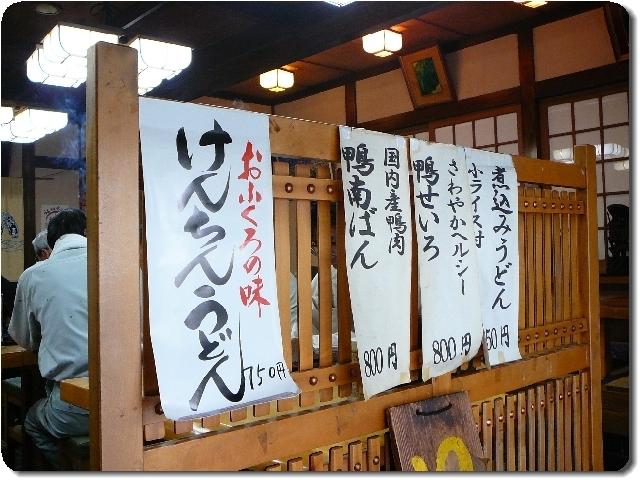 煮込みうどん
小ライス付
50円
さわやかヘルシー
鴨せいろ
800円
国内産鴨肉
鴨南ばん
800円
おふくろの味
けんちんうどん
750円